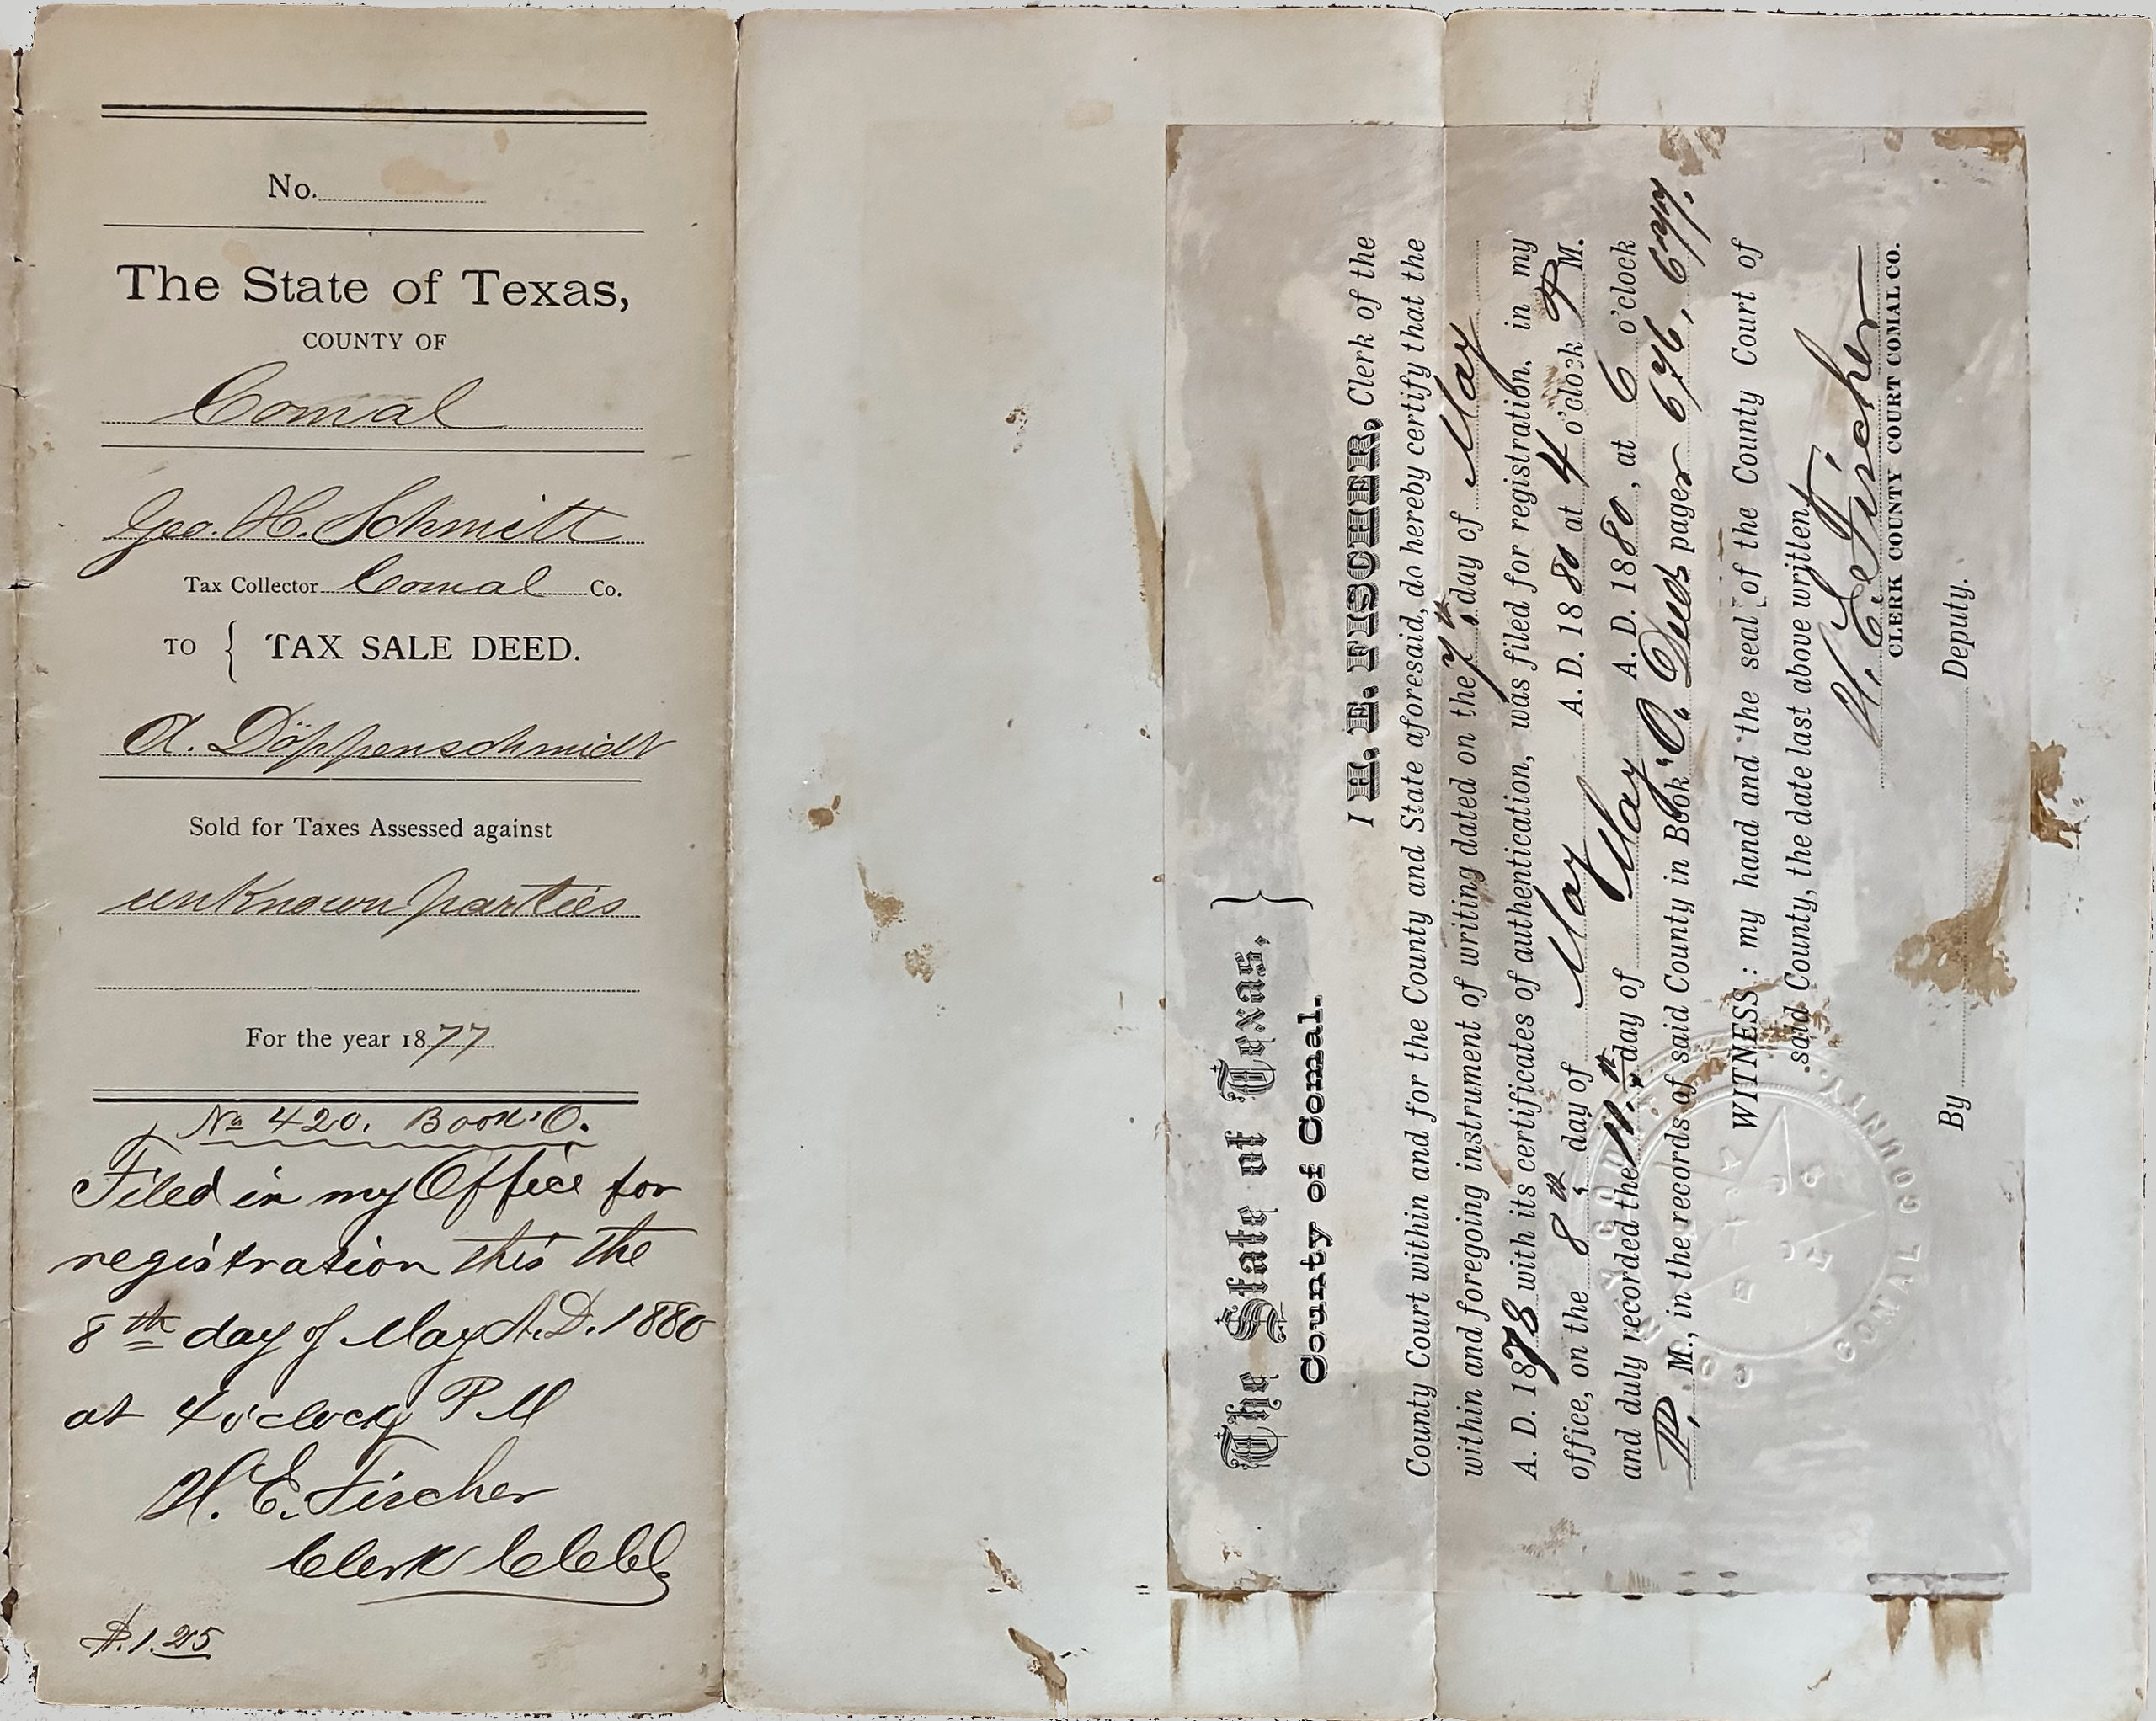 No.
The State of Texas,
COUNTY OF
Comal
Geo. H. Schmitt
Tax Collector Comal Co.
TO { TAX SALE DEED.
A. Döppenschmidt
Sold for Taxes Assessed against
unknown parties
For the year 1877
No 420. Book O.
Filed in my Office for
registration this the
8th day of May A.D. 1880
at 4 o'clock P M
H. E. Fischer
Clerk
$.1.25
The State of Texas, }
County of Comal.
I H. E. FISCHER, Clerk of the
County Court within and for the County and State aforesaid, do hereby certify that the
within and foregoing instrument of writing dated on the 7th day of May
A. D. 1878 with its certificates of authentication, was filed for registration, in my
office, on the 8th day of May A. D. 1880 at 4 o'clock P M.
and duly recorded the 11th day of May A. D. 1880, at 6 o'clock
P. M., in the records of said County in Book "O." Deeds pages 676, 677.
WITNESS: my hand and the seal of the County Court of
said County, the date last above written.
H. E. Fischer
CLERK COUNTY COURT COMAL CO.
By Deputy.
COMAL COUNTY